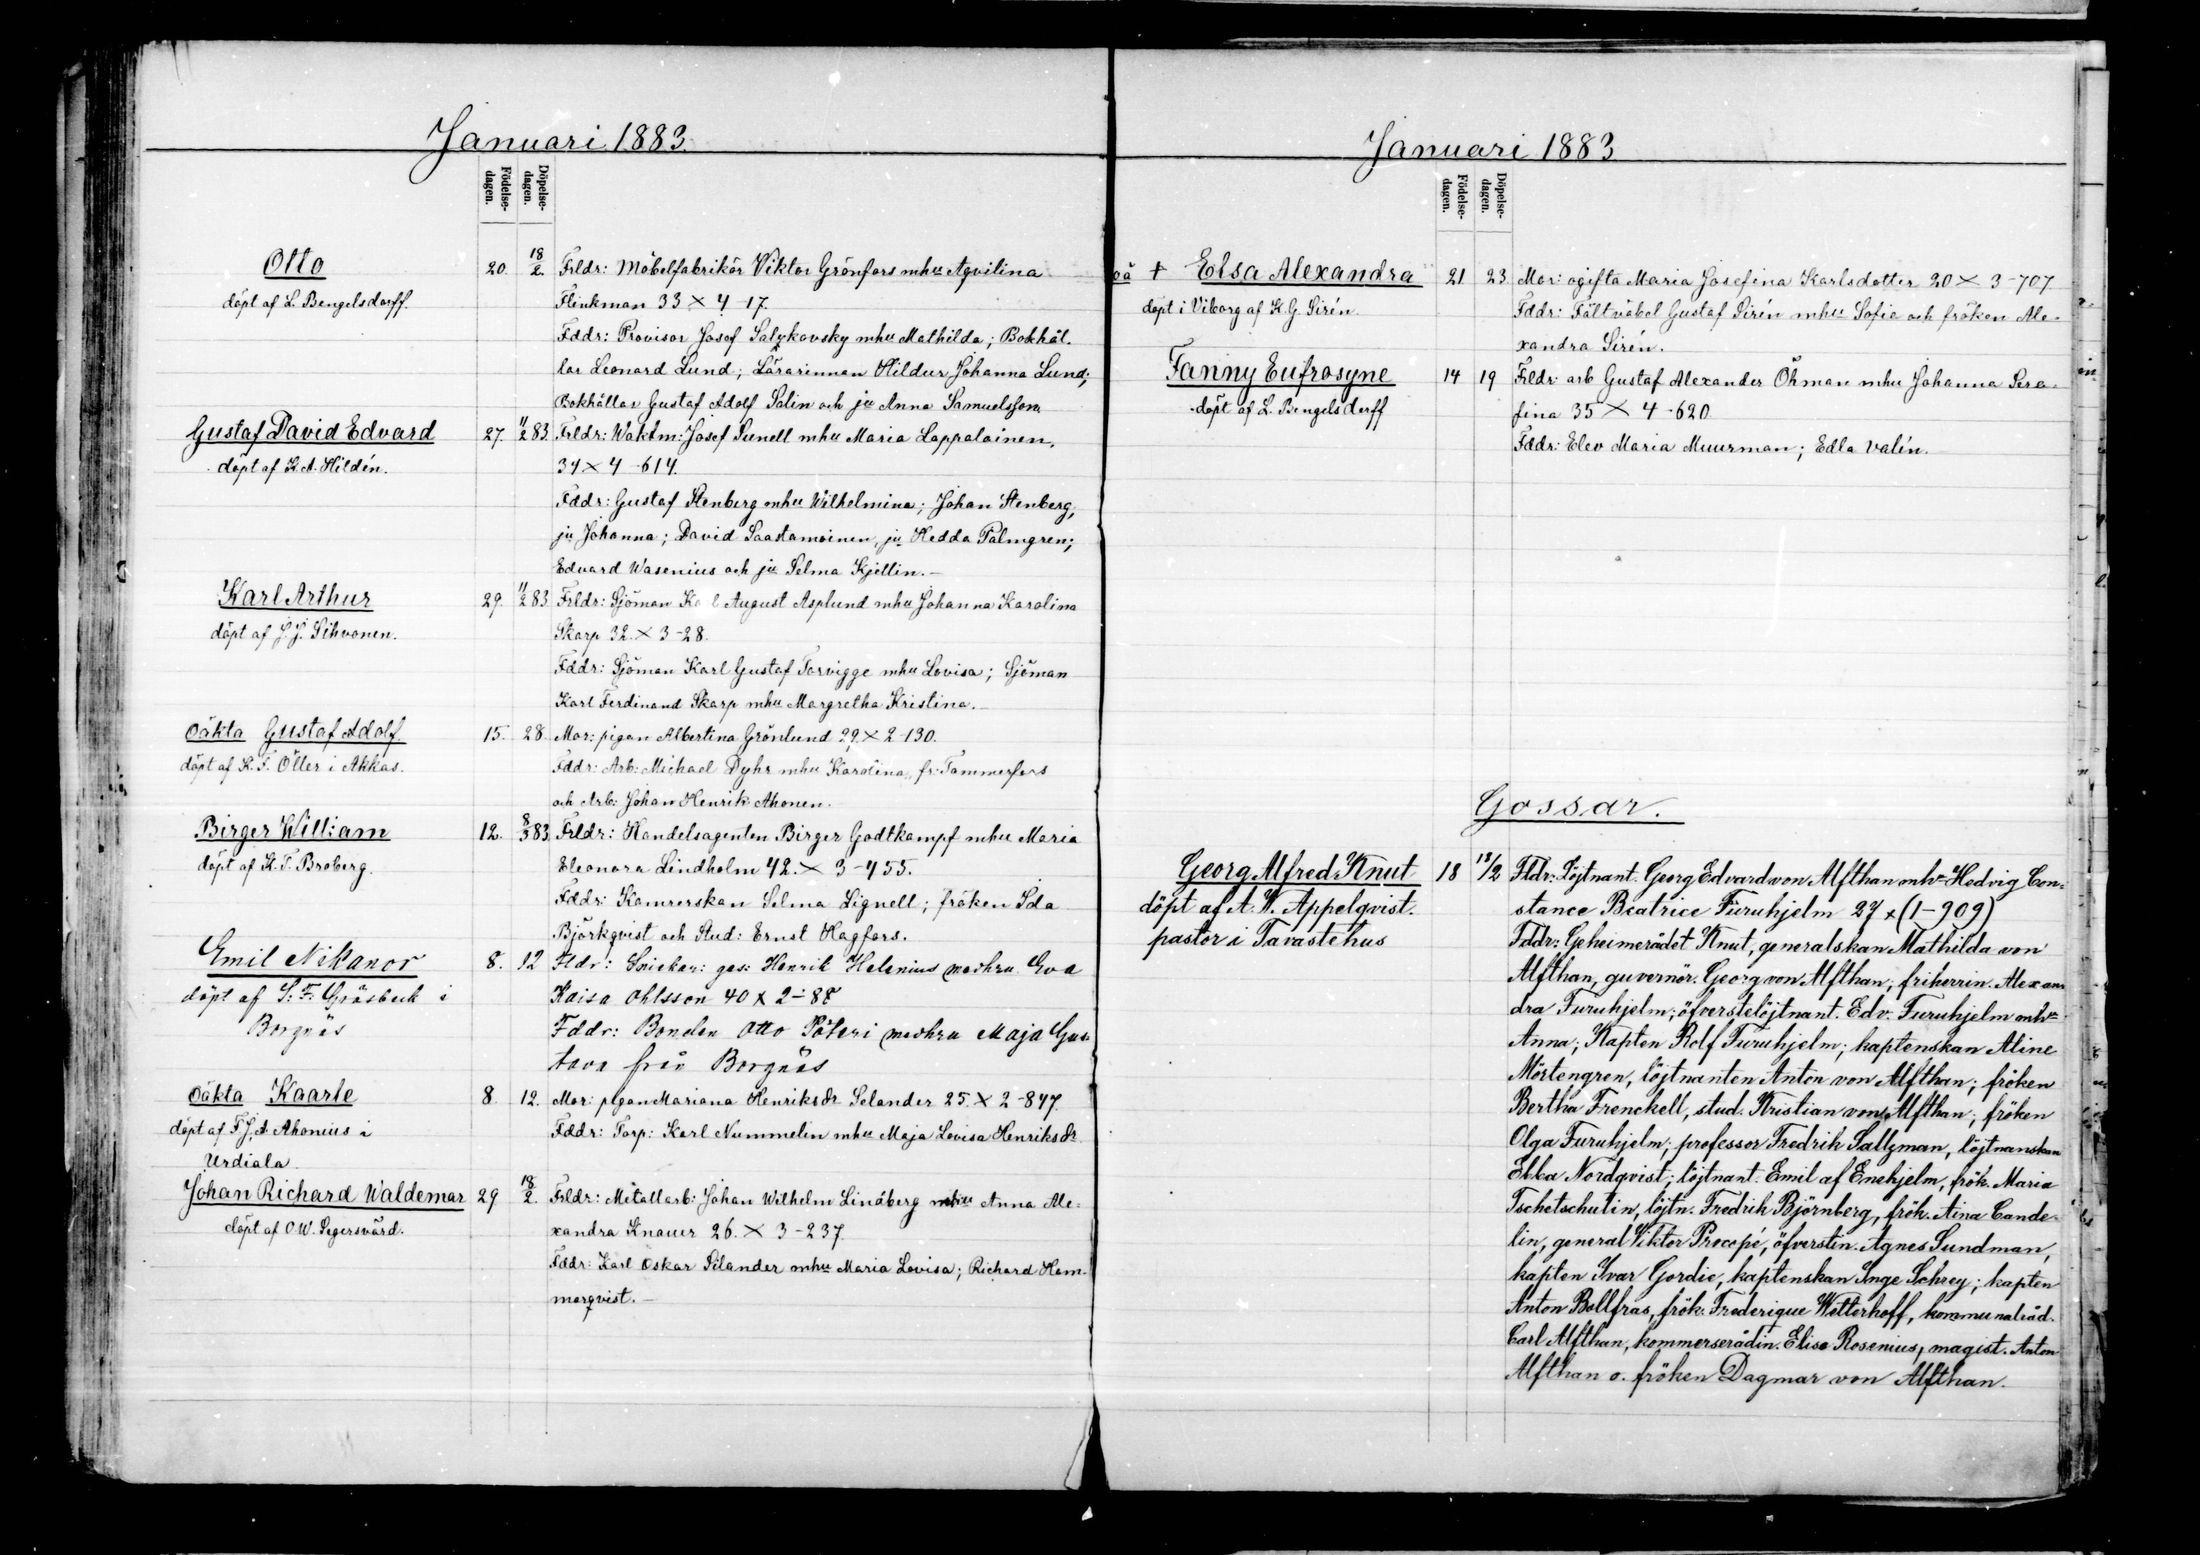 Januari 1883.
Födelse-dagen.
Döpelse-dagen.
Otto 20. 18/2. Frldr: Möbelfabrikör Viktor Grönfors mhu Aqvilina
döpt af L. Bengelsdorff. Flinkman 33 × 4-17.
Fddr: Provisor Josef Salykovsky mhu Mathilda; Bokhål-
lar Leonard Lund; Lärarinnan Hildur Johanna Lund;
Bokhållar Gustaf Adolf Salin och ju Anna Samuelsson.
Gustaf David Edvard 27. 11/2 83. Frldr: Waktm: Josef Sunell mhu Maria Lappalainen,
döpt af K. A. Hildén. 34 × 4-614.
Fddr: Gustaf Stenberg mhu Wilhelmina; Johan Stenberg,
ju Johanna; David Saastamoinen, ju Hedda Palmgren;
Edvard Wasenius och ju Selma Kjellin.—
Karl Arthur 29. 11/2 83. Frldr: Sjöman Ka l August Asplund mhu Johanna Karolina
döpt af J. J. Sihvonen. Skarp 32. × 3-28.
Fddr: Sjöman Karl Gustaf Torvigge mhu Lovisa; Sjöman
Karl Ferdinand Skarp mhu Margretha Kristina.—
Oäkta Gustaf Adolf 15. 28. Mor: pigan Albertina Grönlund 29. × 2-130.
döpt af K. F. Öller i Akkas. Fddr: Arb: Michael Dyhr mhu Karolina, fr: Tammerfors
och Arb: Johan Henrik Ahonen.
Birger William 12. 8/3 83. Frldr: Handelsagenten Birger Godtkampf mhu Maria
döpt af K. T. Broberg. Eleonora Lindholm 42. × 3-455.
Fddr: Kamrerskan Selma Lignell; fröken Ida
Björkqvist och Stud: Ernst Hagfors.
Emil Nikanor 8. 12 Fldr: Snickar: ges: Henrik Helenius medhru Eva
döpt af S: F: Gräsbeck i Kaisa Ohlsson 40 × 2-88
Borgnäs Fddr: Bonden Otto Päteri medhru Maja Gus-
tava från Borgnäs
Oäkta Kaarle 8. 12. Mor: pigan Mariana Henriksdr Selander 25. × 2-847.
döpt af F. J. A. Ahonius i Fddr: Torp: Karl Nummelin mhu Maja Lovisa Henriksdr
Urdiala.
Johan Richard Waldemar 29 18/2. Frldr: Metallarb: Johan Wilhelm Lindberg mhu Anna Ale-
döpt af O. W. Segersvärd. xandra Knauer 26. × 3-237.
Fddr: Karl Oskar Silander mhu Maria Lovisa; Richard Ham-
marqvist.—
Januari 1883
Födelse-dagen.
Döpelse-dagen.
oä + Elsa Alexandra 21 23 Mor: ogifta Maria Josefina Karlsdotter 20 × 3-707
döpt i Viborg af K. G. Sirén. Fddr: Fältväbel Gustaf Sirén mhu Sofie och fröken Ale-
xandra Sirén.
Fanny Eufrosyne 14 19 Frldr: arb Gustaf Alexander Öhman mhu Johanna Sera-
döpt af L. Bengelsdorff fina 35 × 4-620
Fddr: Elev Maria Muurman; Edla Valén.
Gossar.
Georg Alfred Knut 18 18/2 Fldr: Löjtnant. Georg Edvard von Alfthan mhu Hedvig Con-
döpt af A. W. Appelqvist. stance Beatrice Furuhjelm 27 × (1-909)
pastor i Tavastehus Fddr: Geheimerådet Knut, generalskan Mathilda von
Alfthan, guvernör. Georg von Alfthan; friherrin. Alexan-
dra Furuhjelm; öfverstelöjtnant. Edv. Furuhjelm mhu
Anna; Kapten Rolf Furuhjelm; kaptenskan Aline
Mörtengren, löjtnanten Anton von Alfthan; fröken
Bertha Frenckell, stud. Kristian von Alfthan; fröken
Olga Furuhjelm; professor Fredrik Saltzman, löjtnanskan
Ebba Nordqvist; löjtnant. Emil af Enehjelm, frök. Maria
Tschetschulin, löjtn. Fredrik Björnberg, frök. Aina Cande-
lin, general Viktor Procopé, öfverstin. Agnes Sundman,
kapten Ivar Gordie, kaptenskan Inge Schrey; kapten
Anton Bollfras, frök: Frederique Wetterhoff, kommunalråd.
Carl Alfthan, kommerserådin. Elise Rosenius, magist. Anton
Alfthan o. fröken Dagmar von Alfthan.